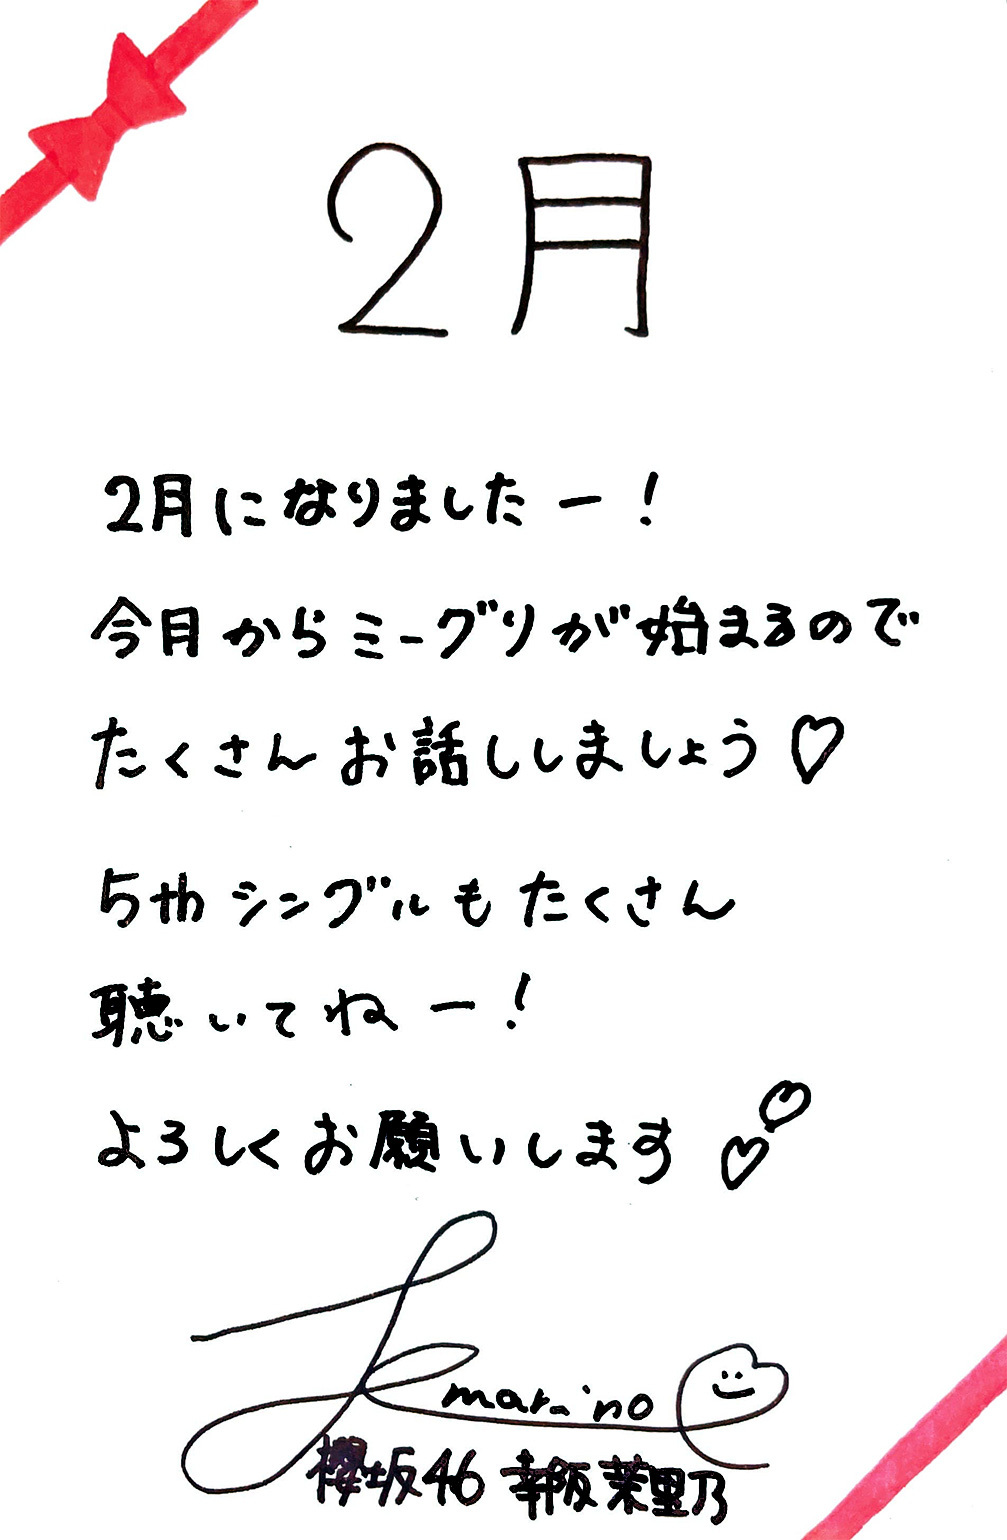 2月
2月になりましたー!
今月からミーグリが始まるので
たくさんお話ししましょう♡
5thシングルもたくさん
聴いてねー!
よろしくお願いします♡♡
marino
櫻坂46 幸阪茉里乃